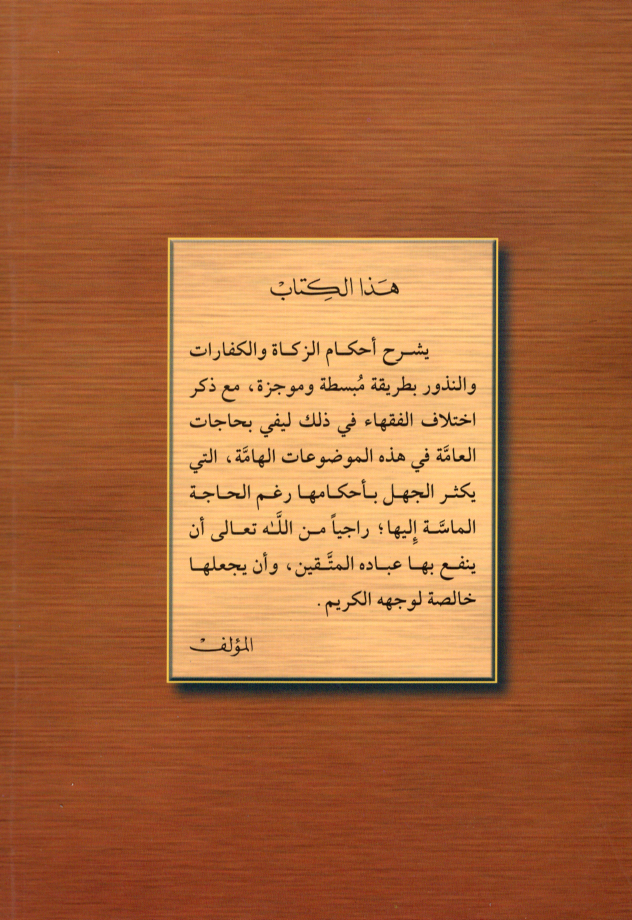 هَذا الكِتابْ
يشرح أحكام الزكاة والكفارات
والنذور بطريقة مُبسطة وموجزة، مع ذكر
اختلاف الفقهاء في ذلك ليفي بحاجات
العامَّة في هذه الموضوعات الهامَّة، التي
يكثر الجهل بأحكامها رغم الحاجة
الماسَّة إِليها؛ راجياً من اللَّه تعالى أن
ينفع بها عباده المتَّقين، وأن يجعلها
خالصة لوجهه الكريم.
المؤلفْ